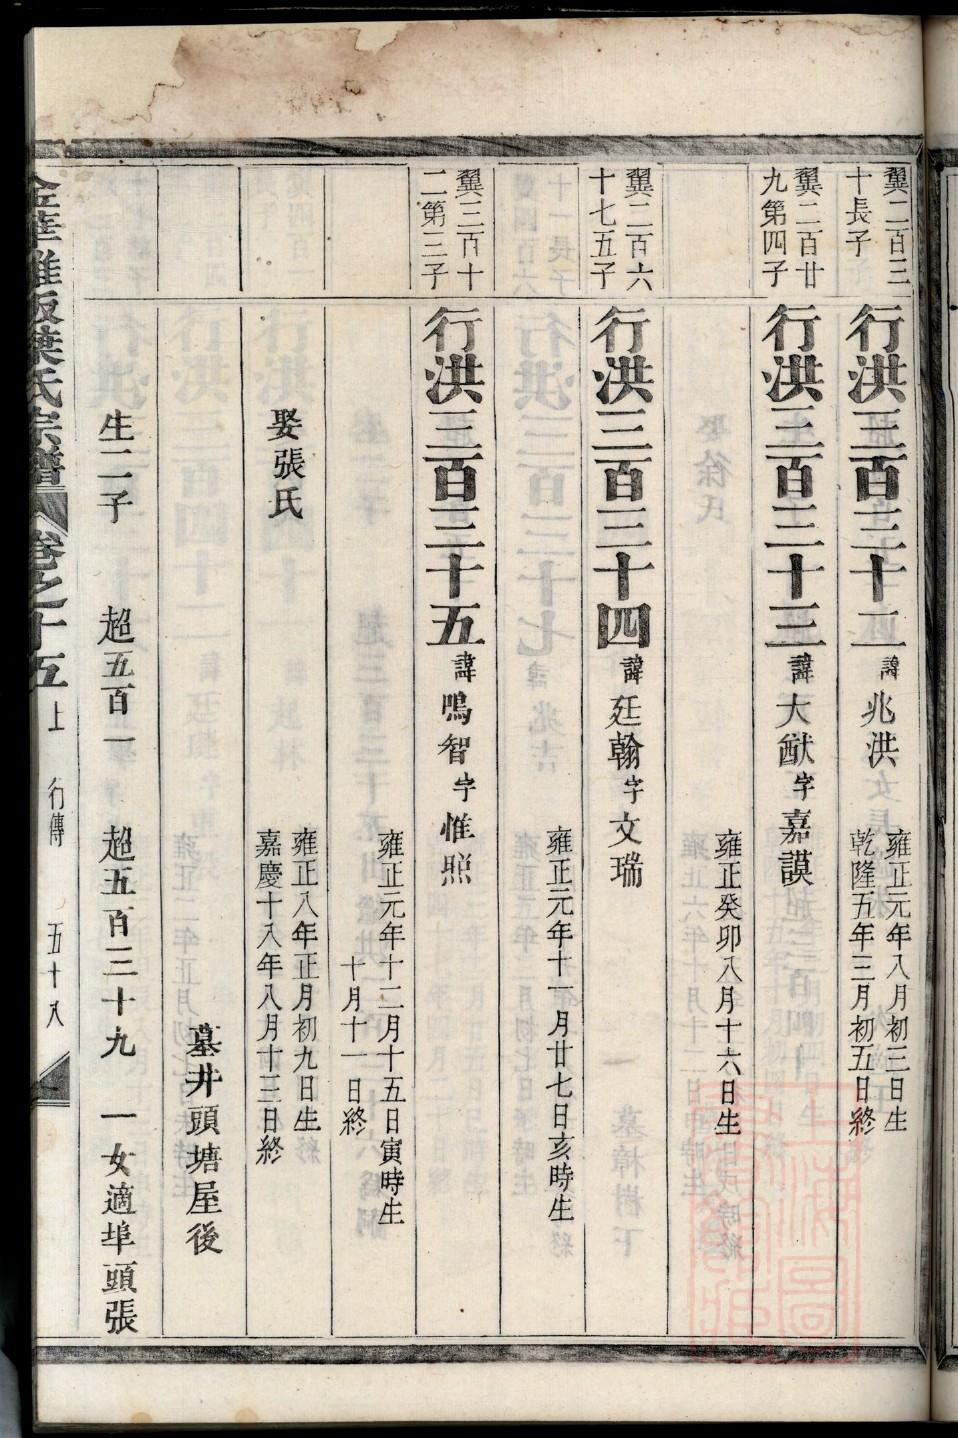 翼二百三
十長子
行洪三百三十二 諱兆洪
雍正元年八月初三日生
乾隆五年三月初五日終
翼二百廿
九第四子
行洪三百三十三 諱大猷 字嘉謨
雍正癸卯八月十六日生
翼二百六
十七五子
行洪三百三十四 諱廷翰 字文瑞
雍正元年十一月廿七日亥時生
翼三百十
二第三子
行洪三百三十五 諱鳴智 字惟照
雍正元年十二月十五日寅時生
十月十一日終
娶張氏
雍正八年正月初九日生
嘉慶十八年八月十三日終
墓井頭塘屋後
生二子 超五百一 超五百三十九 一女適埠頭張
葉氏宗譜 卷之十五上 行傳 五十八